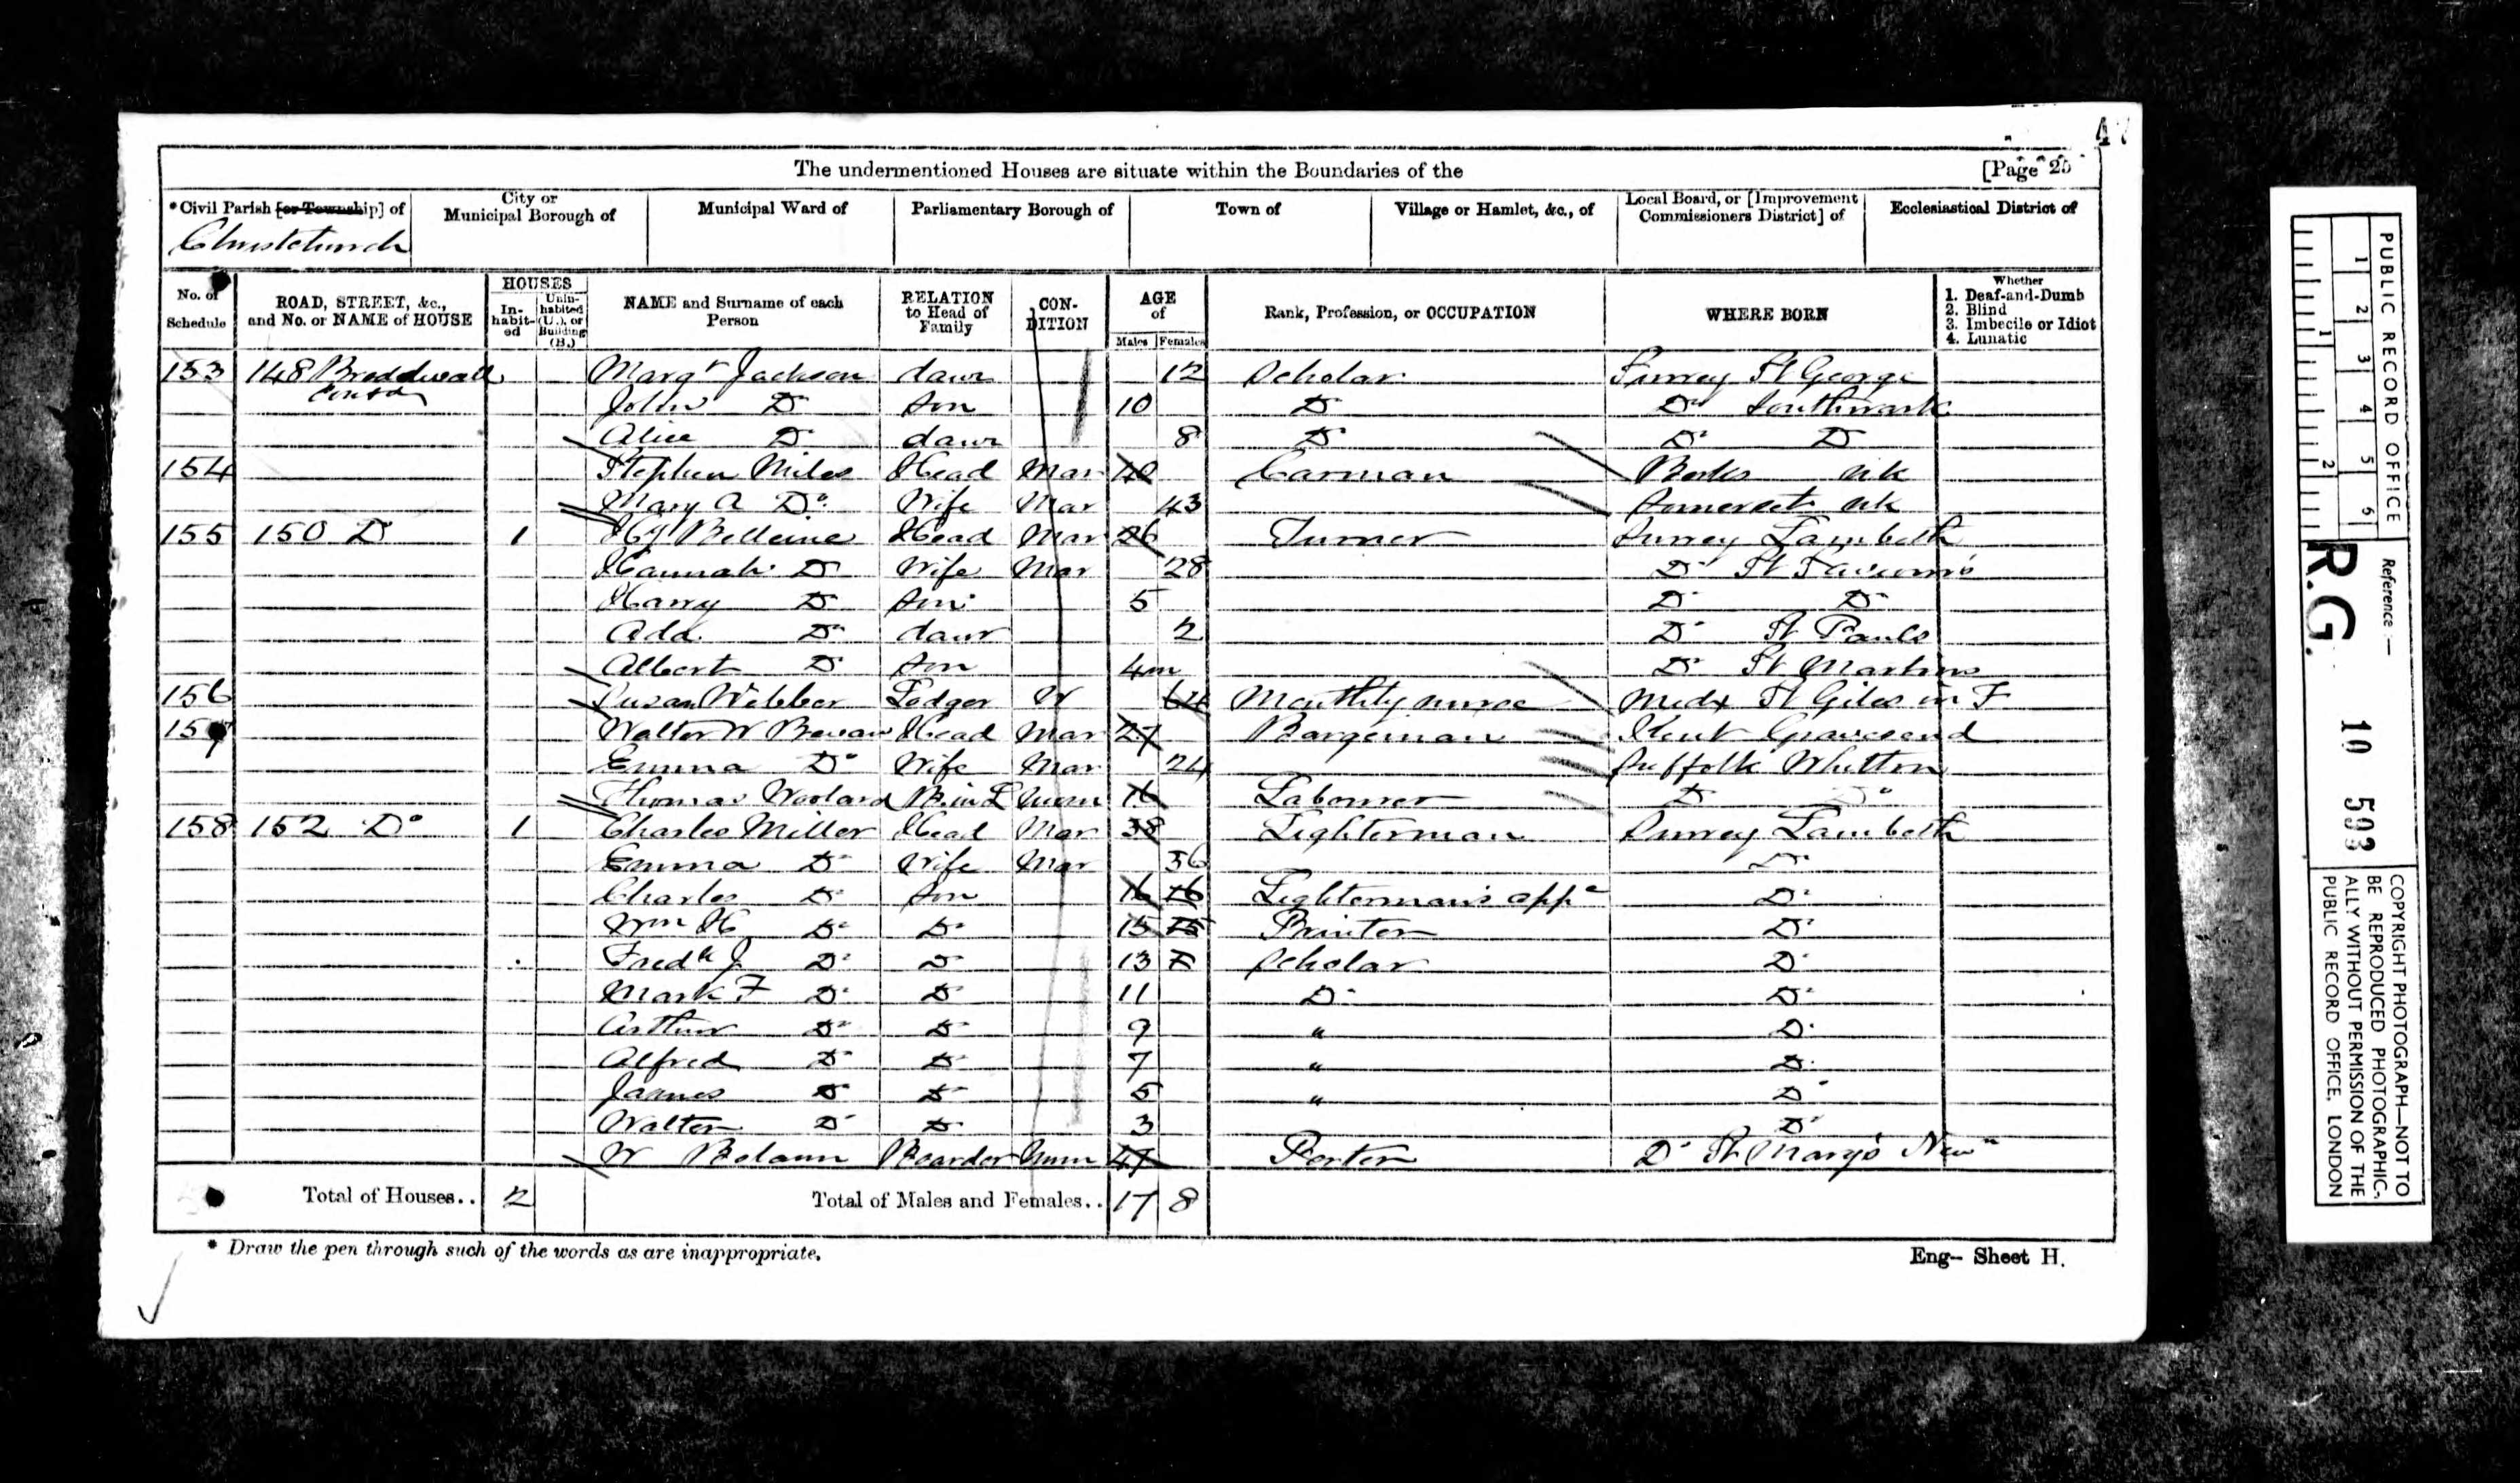 47
The undermentioned Houses are situate within the Boundaries of the [Page 25
*Civil Parish [or Township] of City or Municipal Borough of Municipal Ward of Parliamentary Borough of Town of Village or Hamlet, &c., of Local Board, or [Improvement Commissioners District] of Ecclesiastical District of
Christchurch
No. of Schedule ROAD, STREET, &c., and No. or NAME of HOUSE HOUSES Inhabited Uninhabited (U.), or Building (B.) NAME and Surname of each Person RELATION to Head of Family CONDITION AGE of Males Females Rank, Profession, or OCCUPATION WHERE BORN Whether 1. Deaf-and-Dumb 2. Blind 3. Imbecile or Idiot 4. Lunatic
153 148 Broadwall contd Margt Jackson daur 12 Scholar Surrey St George
John Do son 10 Do Do Southwark
Alice Do daur 8 Do Do Do
154 Stephen Miles Head Mar 40 Carman Berks nk
Mary A Do Wife Mar 43 Somerset nk
155 150 Do 1 Hy Belleine Head Mar 26 Turner Surrey Lambeth
Hannah Do Wife Mar 28 Do St Saviours
Harry Do son 5 Do Do
Ada Do daur 2 Do St Pauls
Albert Do son 4m Do St Martins
156 Susan Webber Lodger W 64 Monthly nurse Midx St Giles in F
157 Walter W Bevan Head Mar 27 Bargeman Kent Gravesend
Emma Do Wife Mar 24 Suffolk Whitton
Thomas Woolard B. in L Unm 16 Labourer Do Do
158 152 Do 1 Charles Miller Head Mar 38 Lighterman Surrey Lambeth
Emma Do Wife Mar 36 Do
Charles Do son 16 16 Lighterman's appe Do
Wm H Do Do 15 15 Printer Do
Fredk J Do Do 13 Scholar Do
Mark F Do Do 11 Do Do
Arthur Do Do 9 " Do
Alfred Do Do 7 " Do
James Do Do 5 " Do
Walter Do Do 3 Do
W Boarder Unm 47 Porter Do St Mary's Newn
Total of Houses.. 2 Total of Males and Females.. 17 8
* Draw the pen through such of the words as are inappropriate.
Eng-- Sheet H.
PUBLIC RECORD OFFICE
1 2 3 4 5 6
1 2
Reference :—
R.G. 10 593
COPYRIGHT PHOTOGRAPH—NOT TO
BE REPRODUCED PHOTOGRAPHIC-
ALLY WITHOUT PERMISSION OF THE
PUBLIC RECORD OFFICE, LONDON